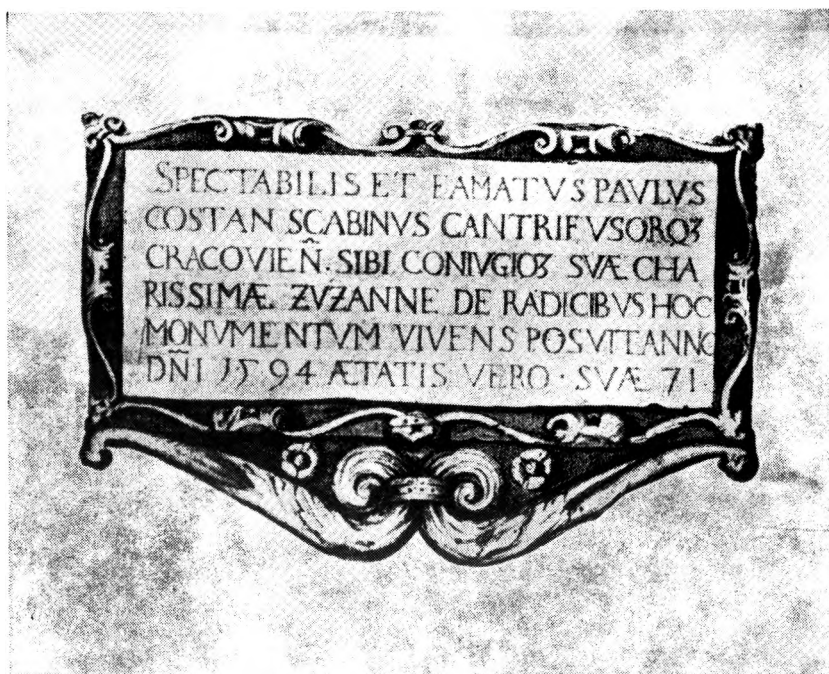 SPECTABILIS ET FAMATVS PAVLVS
COSTAN SCABINVS CANTRIFVSORQꝫ
CRACOVIEÑ. SIBI CONIVGIOꝫ SVÆ CHA
RISSIMÆ ZVZANNE DE RADICIBVS HOC
MONVMENTVM VIVENS POSVIT ANNO
DÑI 1594 ÆTATIS VERO · SVÆ 71